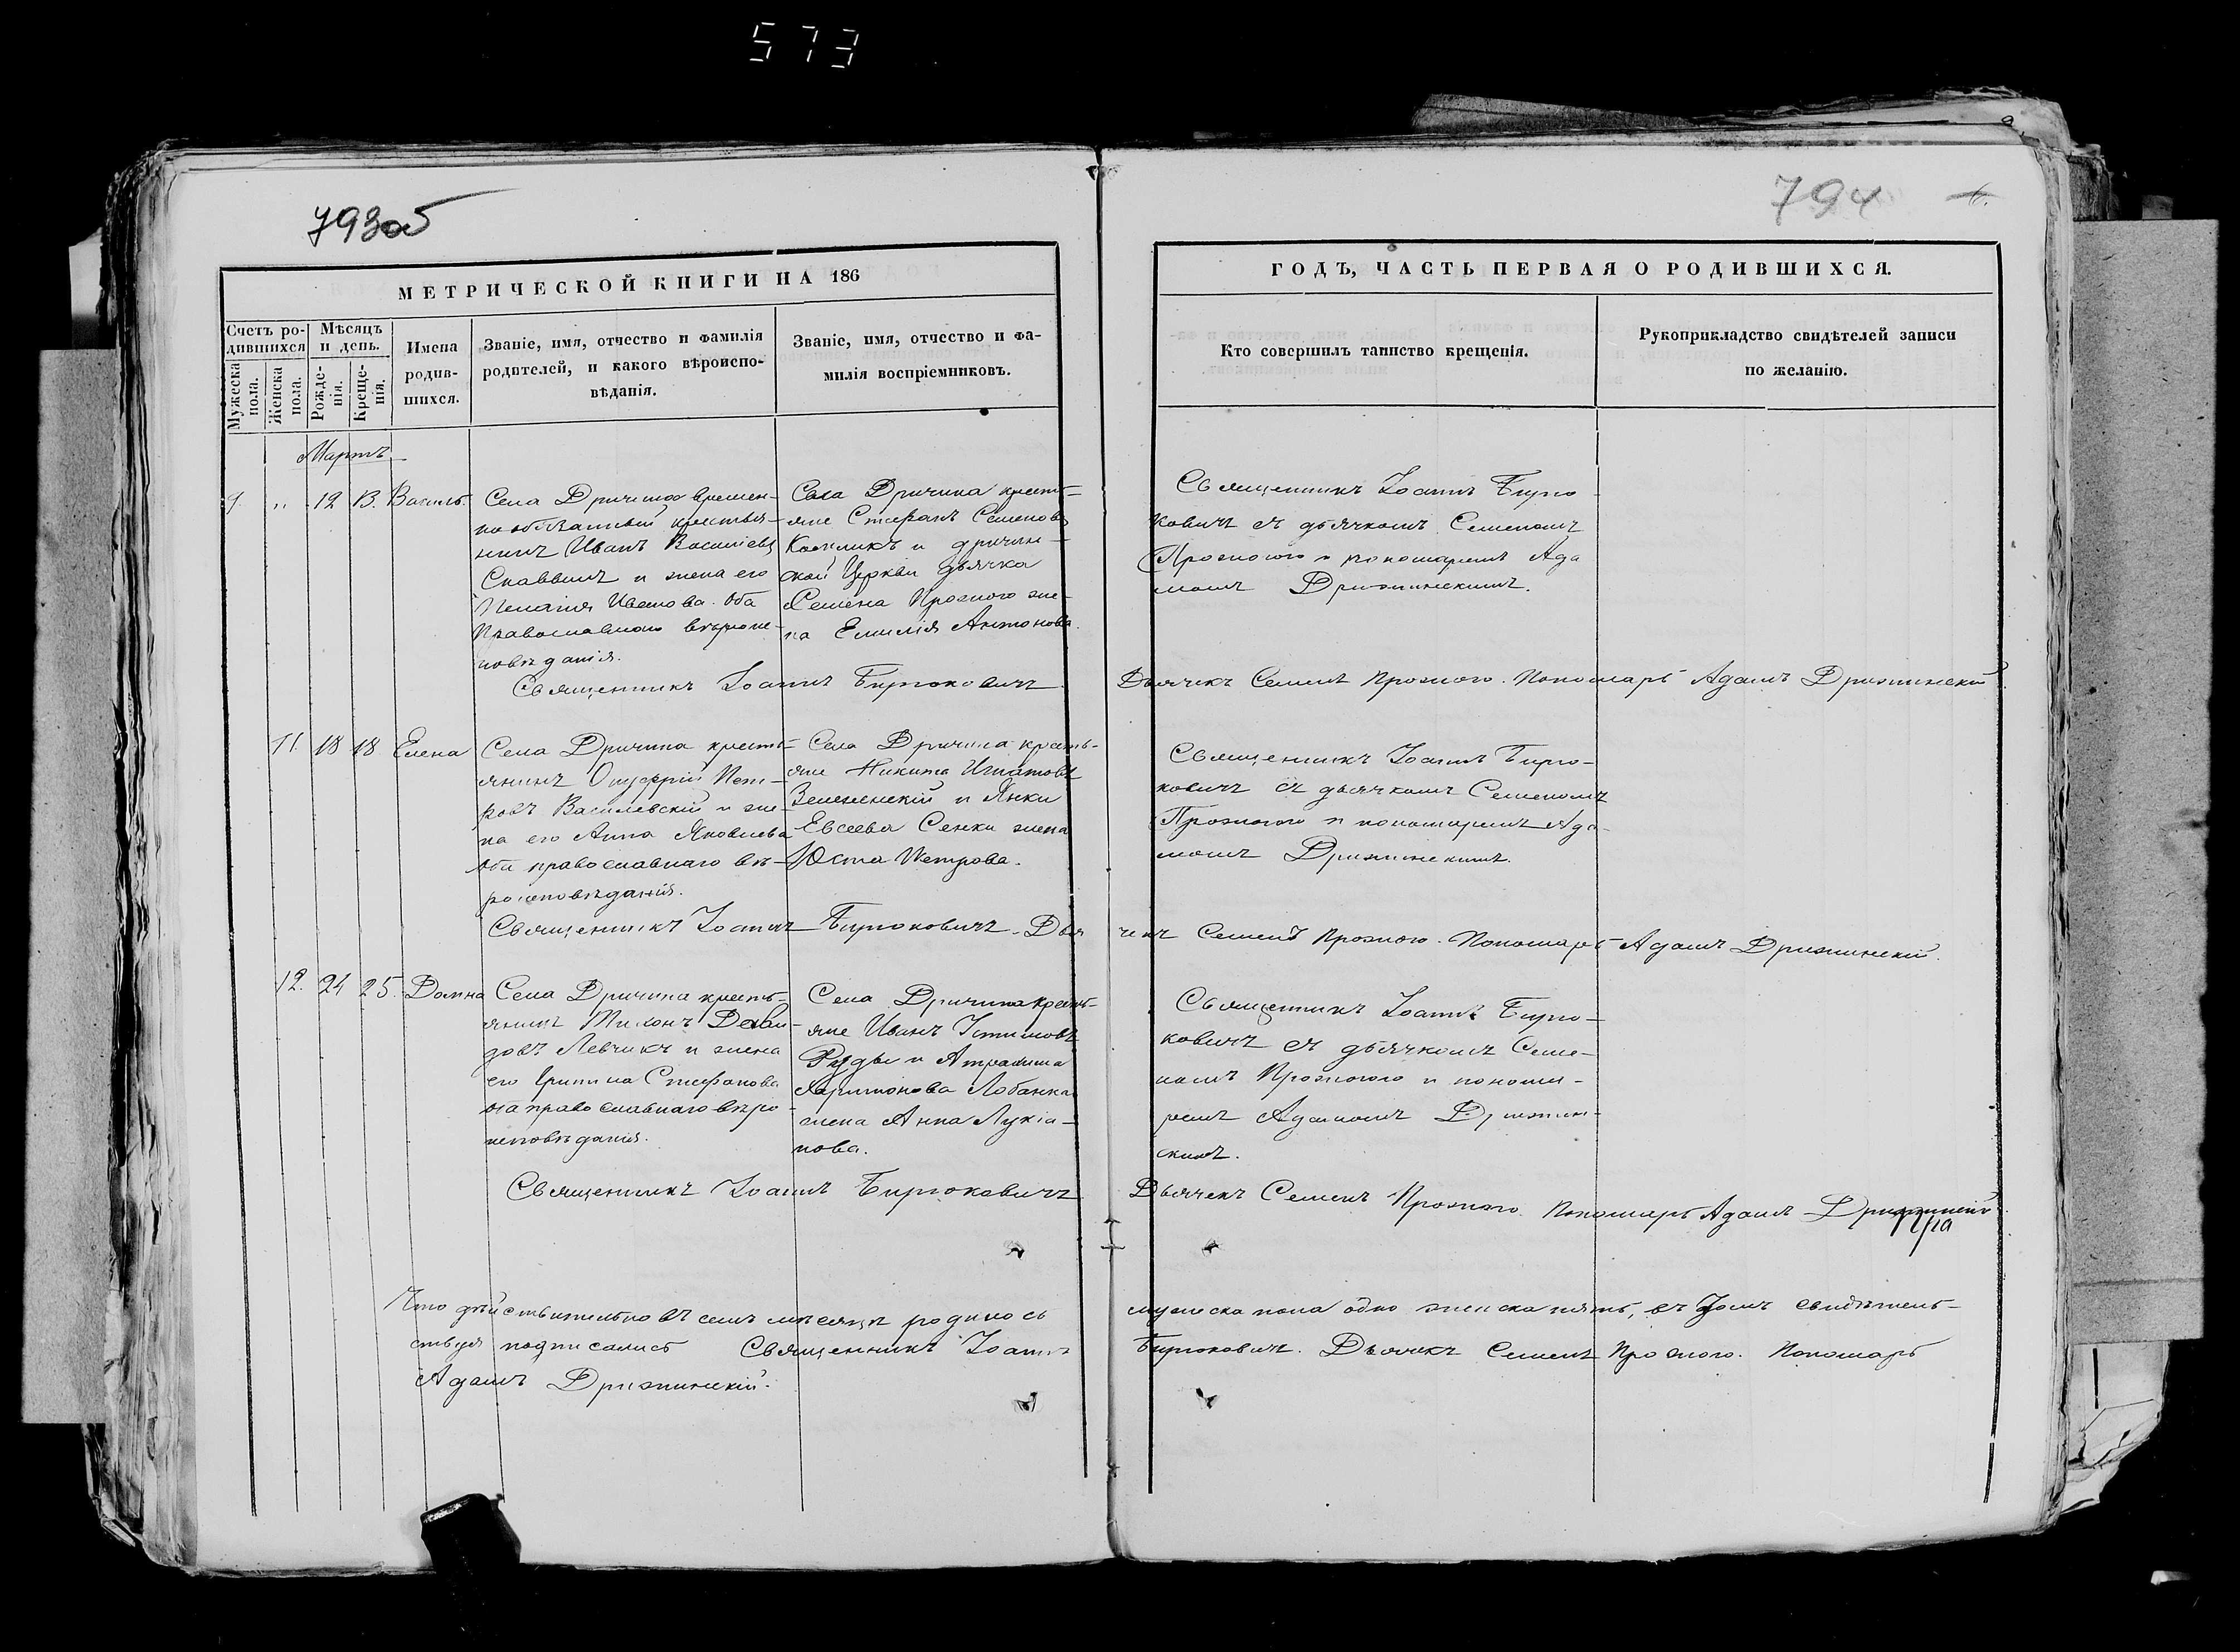 573
793об
794
МЕТРИЧЕСКОЙ КНИГИ НА 186
Счетъ ро-
дившихся
Мѣсяцъ
и день.
Мужеска
пола.
Женска
пола.
Рожде-
нія.
Креще-
нія.
Имена
родив-
шихся.
Званіе, имя, отчество и фамилія
родителей, и какого вѣроиспо-
вѣданія.
Званіе, имя, отчество и фа-
милія воспріемниковъ.
ГОДЪ, ЧАСТЬ ПЕРВАЯ О РОДИВШИХСЯ.
Кто совершилъ таинство крещенія.
Рукоприкладство свидѣтелей записи
по желанію.
Мартъ
9. " 12 13. Василь.
Села Дричина времен-
но обязанный крестья-
нинъ Иванъ Василіевъ
и жена его
Пелагія Иванова. Оба
Православнаго вѣроис-
повѣданія.
Села Дричина кресть-
яне Стефанъ Семеновъ
и дричин-
ской Церкви дьячка
Семена Прозного же-
на Емилія Антонова.
Священникъ Іоаннъ Бирю-
ковичъ съ дьячкомъ Семеномъ
Прозного и пономаремъ Ада
момъ
Священникъ Іоаннъ Бирюковичъ. Дьячекъ Семенъ Прозного. Пономарь Адамъ
11. 18 18. Елена
Села Дричина кресть-
янинъ Онуфрій Пет-
ровъ Василевскій и же-
на его Анна Яковлева
оба православнаго вѣ-
роисповѣданія.
Села Дричина кресть-
яне Никита Игнатовъ
и Янки
Евсеева Сенки жена
Юста Петрова.
Священникъ Іоаннъ Бирю-
ковичъ съ дьячкомъ Семеномъ
Прозного и пономаремъ Ада-
момъ
Священникъ Іоаннъ Бирюковичъ. Дьячекъ Семенъ Прозного. Пономарь Адамъ
12. 24 25. Домна
Села Дричина кресть-
янинъ Тихонъ Дави-
довъ Левчикъ и жена
его Стефанова
оба православнаго вѣро
исповѣданія.
Села Дричина кресть-
яне Иванъ Устиновъ
и
Харитонова Лобанка
жена Анна Лукіа-
нова.
Священникъ Іоаннъ Бирю-
ковичъ съ дьячкомъ Семе-
номъ Прозного и понома-
ремъ Адамомъ
скимъ.
Священникъ Іоаннъ Бирюковичъ Дьячекъ Семенъ Прозного. Пономарь Адамъ
Что дѣйствительно въ семъ мѣсяцѣ родилось мужеска пола одно женска пять, въ томъ свидѣтель-
ствуя подписались Священникъ Іоаннъ Бирюковичъ. Дьячекъ Семенъ Прозного. Пономарь
Адамъ